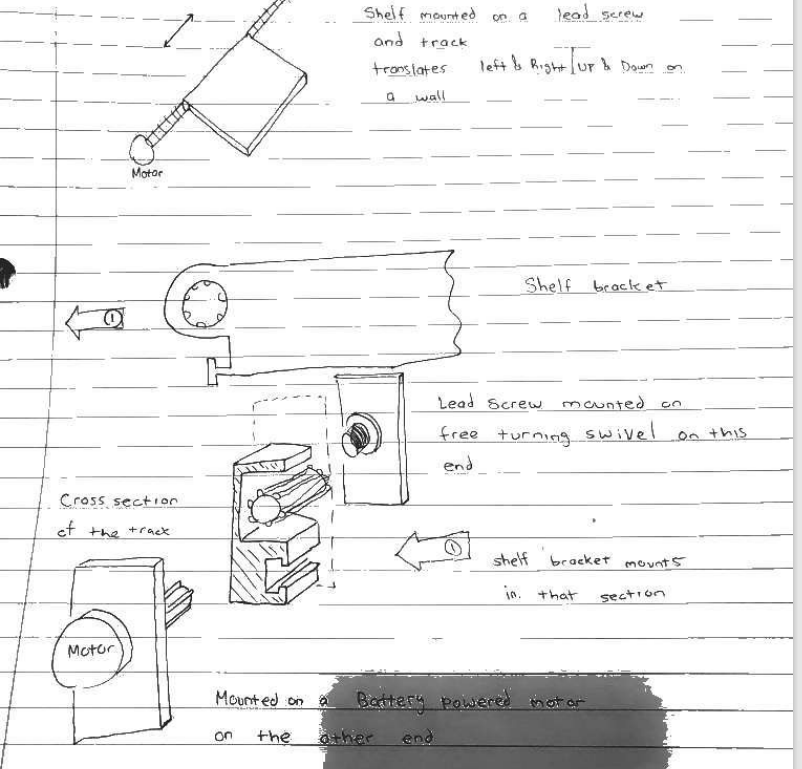 Shelf mounted on a lead screw
and track
translates left & Right/Up & Down on
a wall
Motor
Shelf bracket
1
Lead Screw mounted on
free turning swivel on this
end
Cross section
of the track
1
shelf bracket mounts
in. that section
Motor
Mounted on a Battery powered motor
on the other end